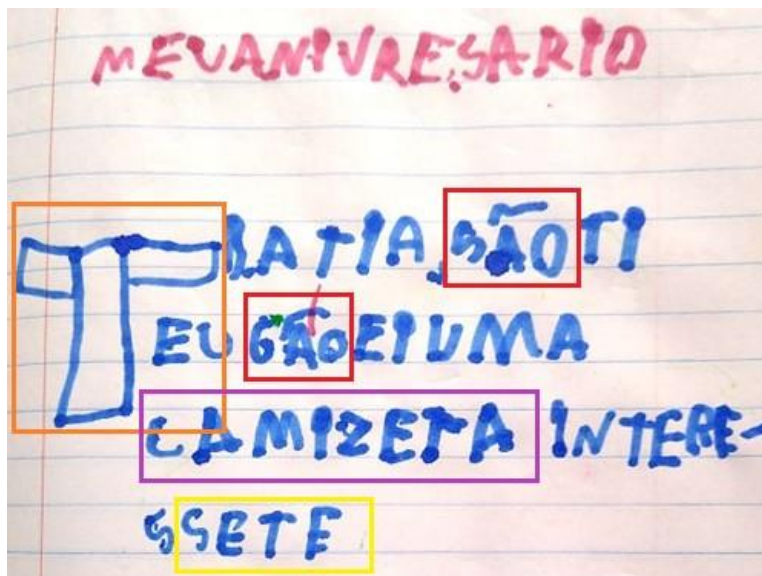 MEU ANIVRESARIO
TRATIA SÃO TI
EU GÃOEI UMA
CAMIZETA INTERE-
SSETE